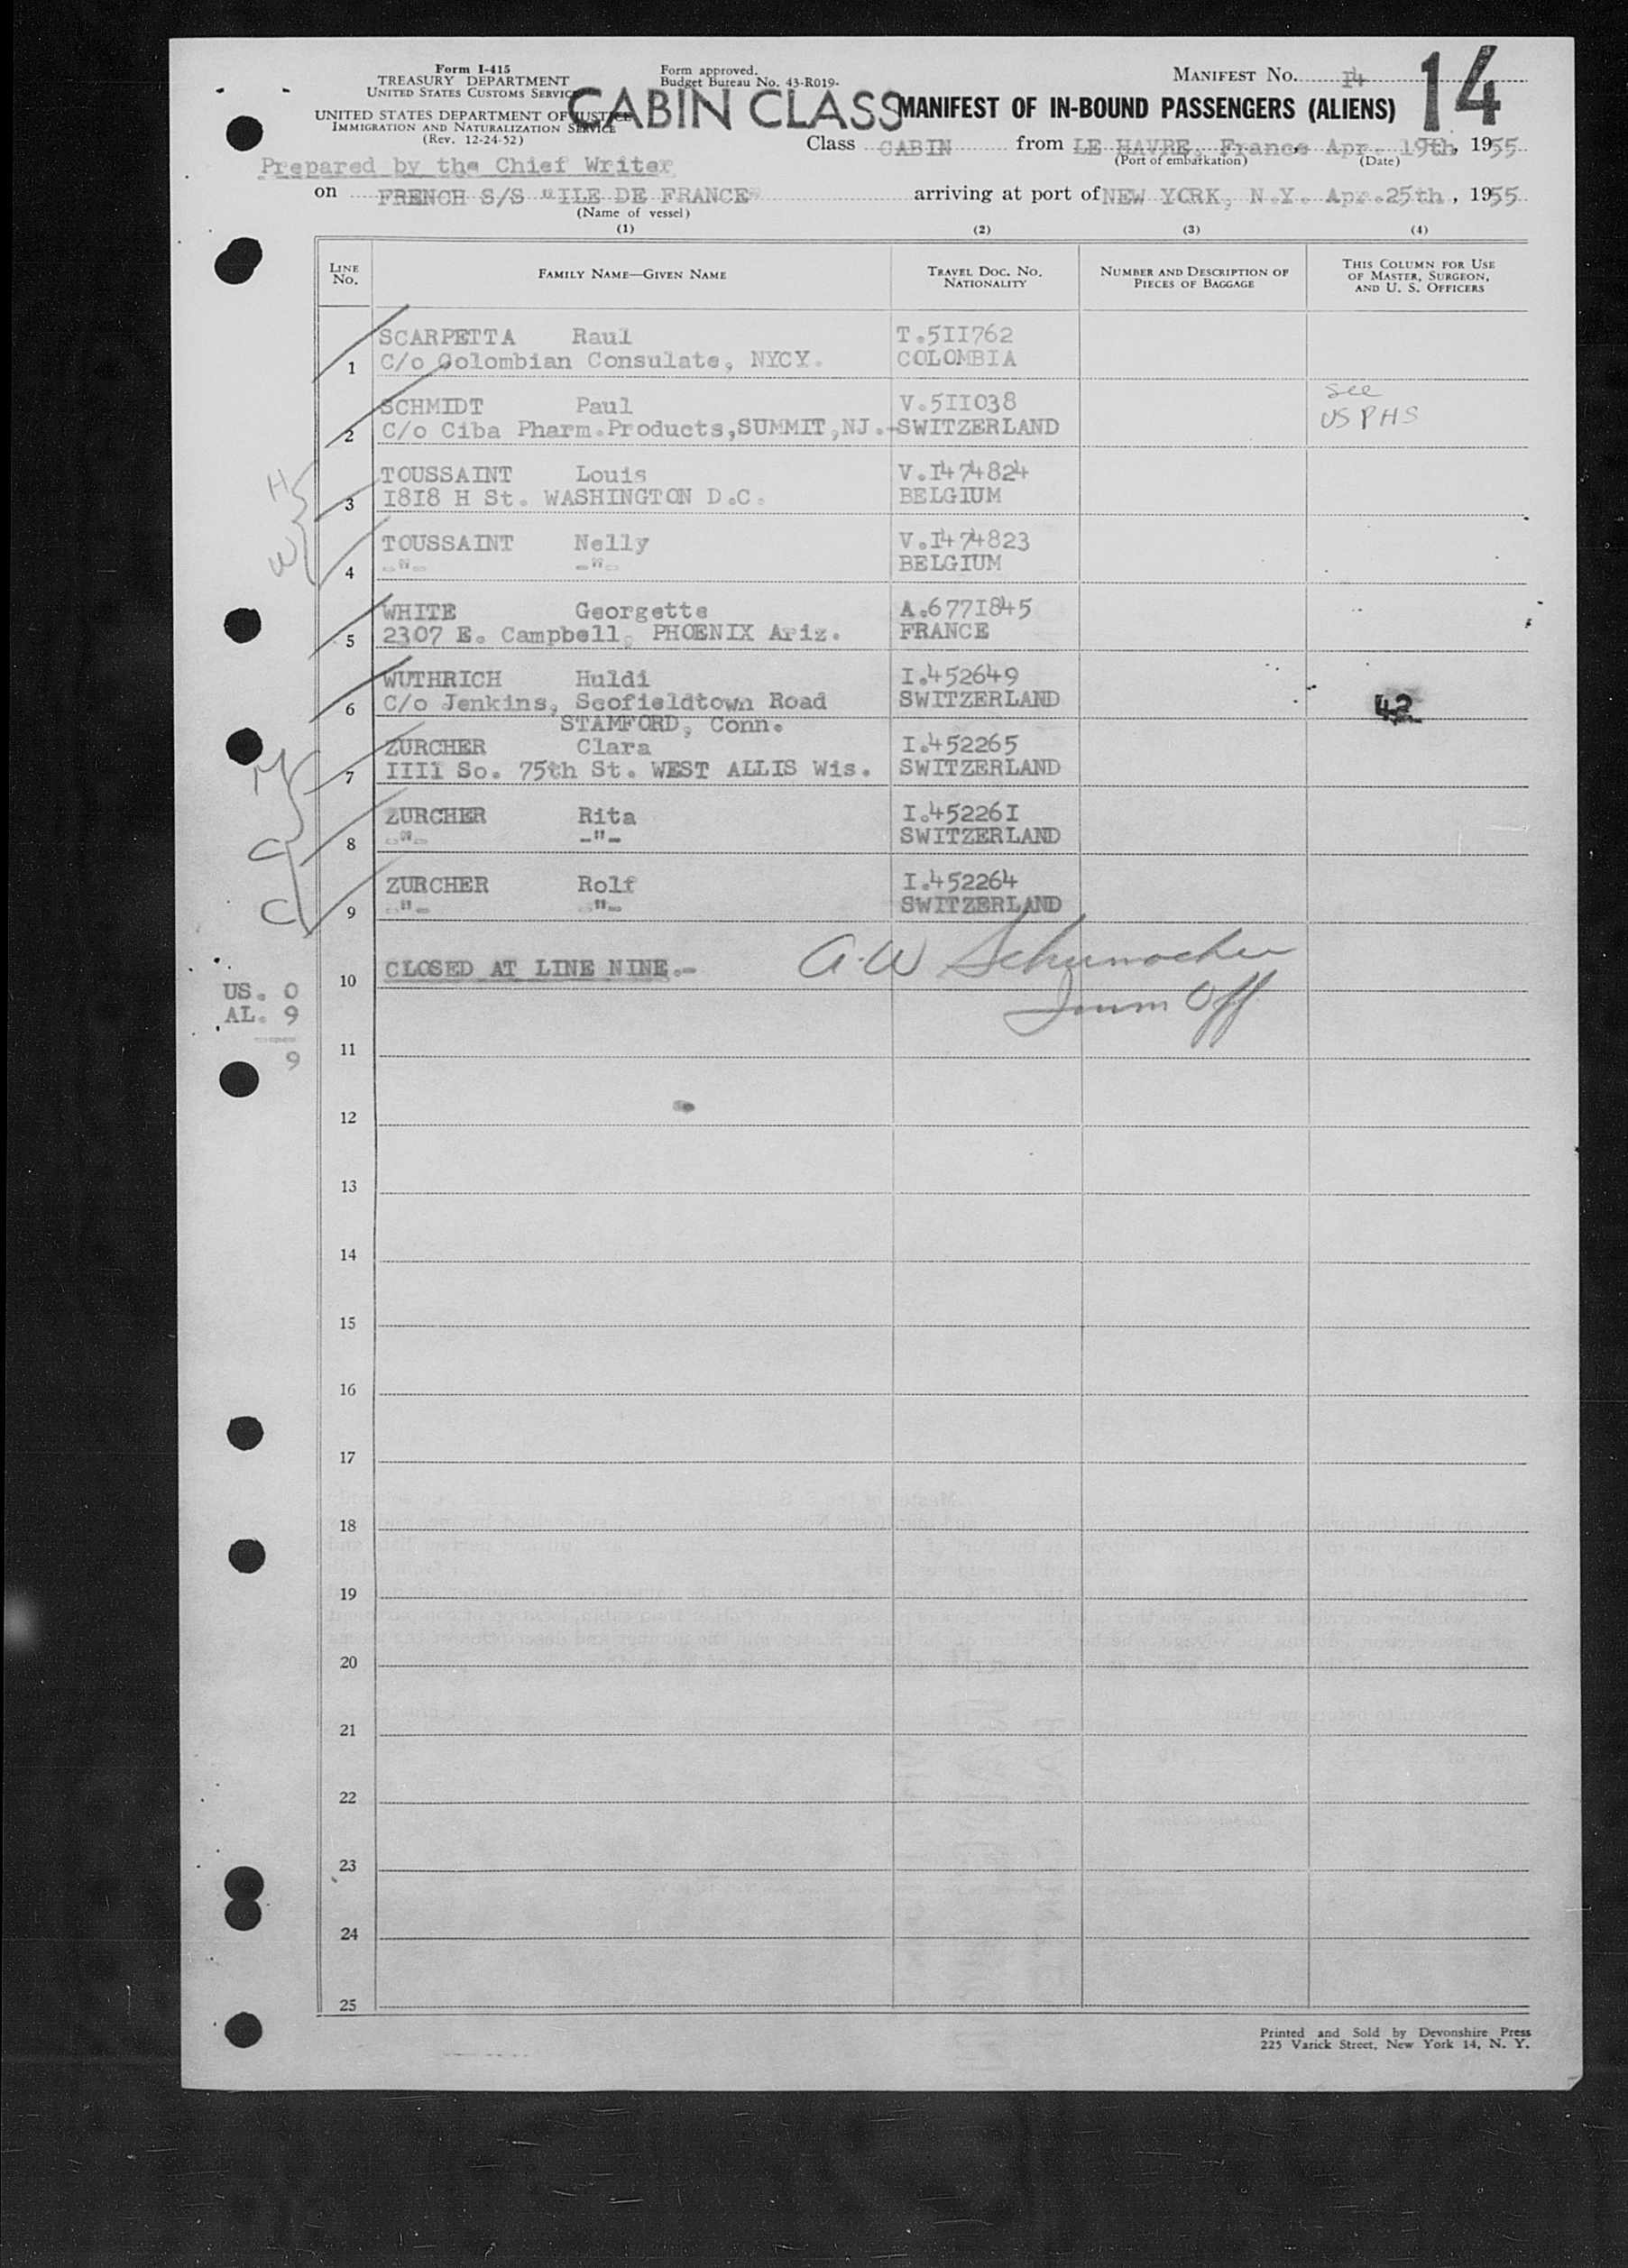 Form I-415
TREASURY DEPARTMENT
UNITED STATES CUSTOMS SERVICE
UNITED STATES DEPARTMENT OF JUSTICE
IMMIGRATION AND NATURALIZATION SERVICE
(Rev. 12-24-52)
Form approved.
Budget Bureau No. 43-R019-
MANIFEST NO. I4
14
CABIN CLASS
MANIFEST OF IN-BOUND PASSENGERS (ALIENS)
Class CABIN from LE HAVRE, France, Apr. 19th, 1955
(Port of embarkation) (Date)
Prepared by the Chief Writer
on FRENCH S/S "ILE DE FRANCE" arriving at port of NEW YORK, N.Y. Apr.25th, 1955
(Name of vessel)
(1) (2) (3) (4)
LINE NO. FAMILY NAME—GIVEN NAME TRAVEL DOC. NO. NATIONALITY NUMBER AND DESCRIPTION OF PIECES OF BAGGAGE THIS COLUMN FOR USE OF MASTER, SURGEON, AND U. S. OFFICERS
SCARPETTA Raul T.5II762
1 C/o Colombian Consulate, NYCY. COLOMBIA
SCHMIDT Paul V.5II038 See
2 C/o Ciba Pharm.Products,SUMMIT,NJ.- SWITZERLAND USPHS
H TOUSSAINT Louis V.I474824
3 I8I8 H St. WASHINGTON D.C. BELGIUM
W TOUSSAINT Nelly V.I474823
4 -"- -"- BELGIUM
WHITE Georgette A.677I845
5 2307 E. Campbell, PHOENIX Ariz. FRANCE
WUTHRICH Huldi I.452649
6 C/o Jenkins, Scofieldtown Road SWITZERLAND 42
STAMFORD, Conn.
M ZURCHER Clara I.452265
7 IIII So. 75th St. WEST ALLIS Wis. SWITZERLAND
C ZURCHER Rita I.45226I
8 -"- -"- SWITZERLAND
C ZURCHER Rolf I.452264
9 -"- -"- SWITZERLAND
10 CLOSED AT LINE NINE.- A.W Schumacher
Imm Off
US. 0
AL. 9
9
11
12
13
14
15
16
17
18
19
20
21
22
23
24
25
Printed and Sold by Devonshire Press
225 Varick Street, New York 14, N. Y.